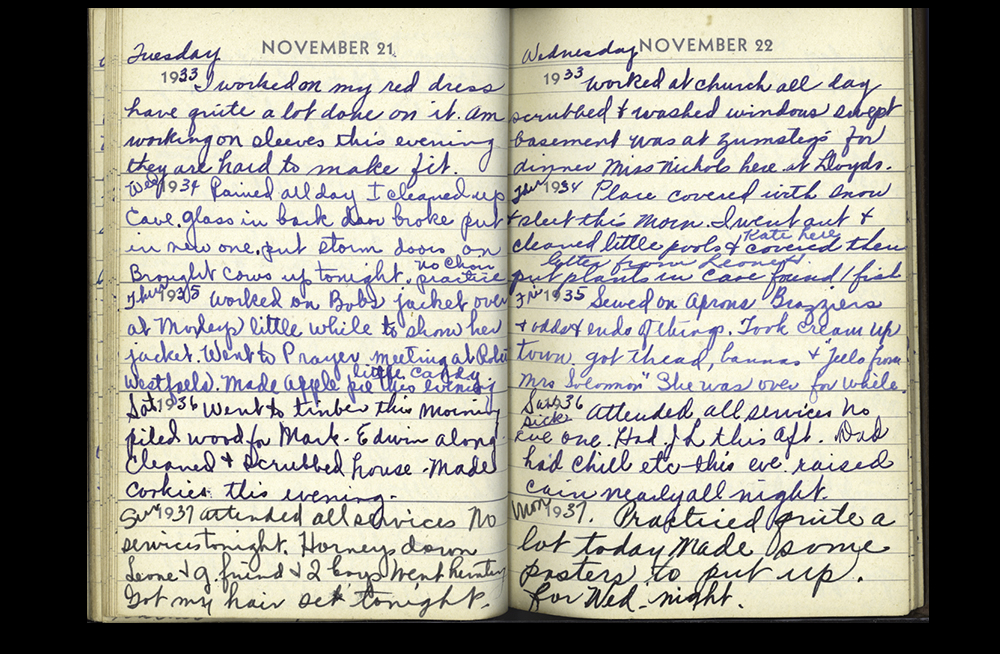 Tuesday
NOVEMBER 21
1933 I worked on my red dress
have quite a lot done on it. Am
working on sleeves this evening
they are hard to make fit.
Wed 1934 Rained all day I cleaned up
Cave. glass in back door broke put
in new one. put storm doors on
Brought cows up tonight. no choir practice
Thur 1935 Worked on Bobs jacket over
at Morleys little while to show her
jacket. Went to Prayer meeting at
Westfalls. Made apple pie little candy this evening
Sat 1936 Went to timber this morning
piled wood for Mark - Edwin along
Cleaned & scrubbed house - Made
Cookies this evening.
Sun 1937 attended all services No
services tonight. Horneys down
Leone & g. friend & 2 boys went hunting
Got my hair set tonight.
Wednesday
NOVEMBER 22
1933 Worked at church all day
scrubbed & washed windows swept
basement was at Zumstegs for
dinner Miss Nichols here at Lloyds.
Thur 1934 Place covered with snow
& sleet this morn. I went out &
cleaned little pools & covered them Kate here
letter from Leone
put plants in Cave found 1 fish
Fri 1935 Sewed on Aprons Brazziers
& odds & ends of things. Took Cream up
town, got thead, bannas & "jello from
Mrs Solomon" She was over for while.
Sun 1936 Attended all services no
sick
Eve one. Had J L this Aft. Dad
had chill etc this eve. raised
cain nearly all night.
Mon 1937. Practiced quite a
lot today Made some
posters to put up.
for Wed. night.